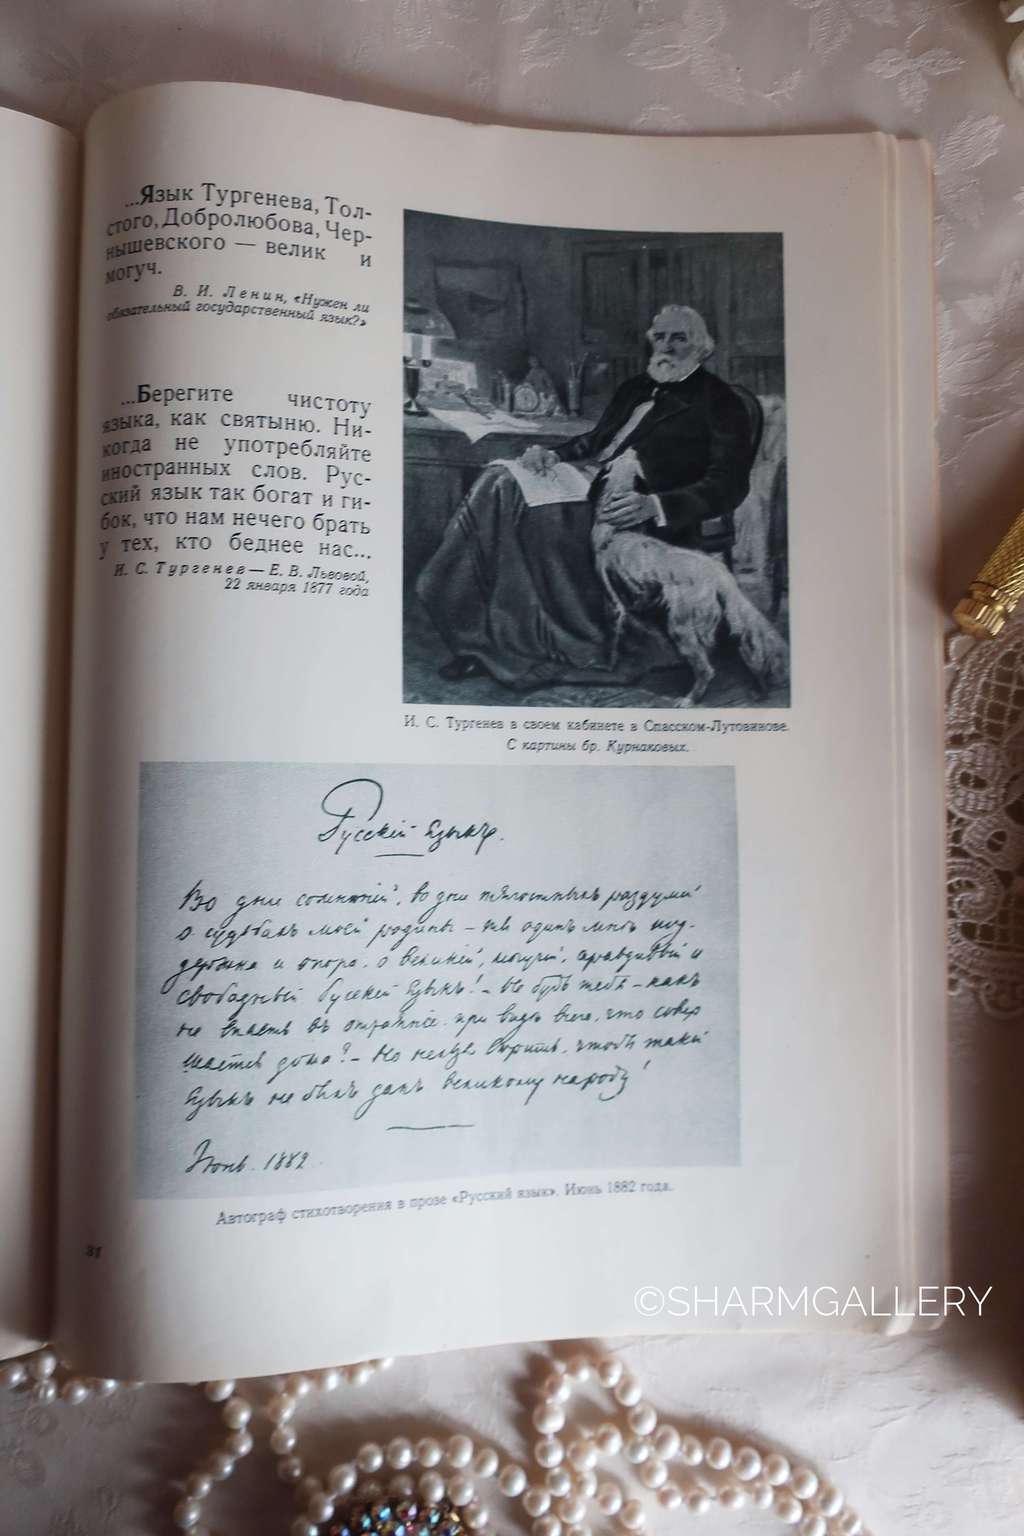 ...Язык Тургенева, Тол-
стого, Добролюбова, Чер-
нышевского — велик и
могуч.
В. И. Ленин, «Нужен ли
обязательный государственный язык?»
...Берегите чистоту
языка, как святыню. Ни-
когда не употребляйте
иностранных слов. Рус-
ский язык так богат и ги-
бок, что нам нечего брать
у тех, кто беднее нас...
И. С. Тургенев — Е. В. Львовой,
22 января 1877 года
И. С. Тургенев в своем кабинете в Спасском-Лутовинове.
С картины бр. Курнаковых.
Русскій Языкъ.
Во дни сомнѣній, во дни тягостныхъ раздумій
о судьбахъ моей родины — ты одинъ мнѣ под-
держка и опора, о великій, могучій, правдивый и
свободный русскій языкъ! — Не будь тебя — какъ
не впасть въ отчаяніе, при видѣ всего, что совер
шается дома? — Но нельзя вѣрить, чтобы такой
языкъ не былъ данъ великому народу!
Июнь. 1882
Автограф стихотворения в прозе «Русский язык». Июнь 1882 года.
©SHARMGALLERY